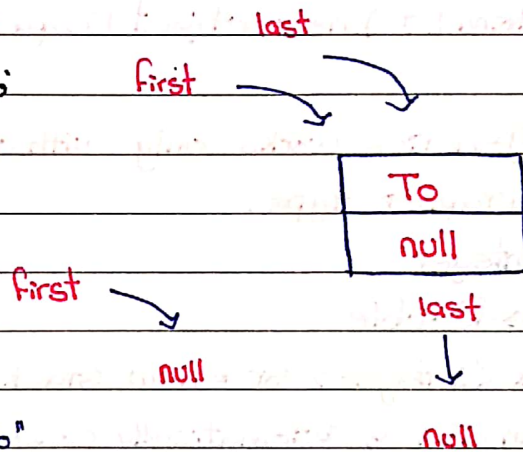 last
first
To
null
first
last
null
o"
null